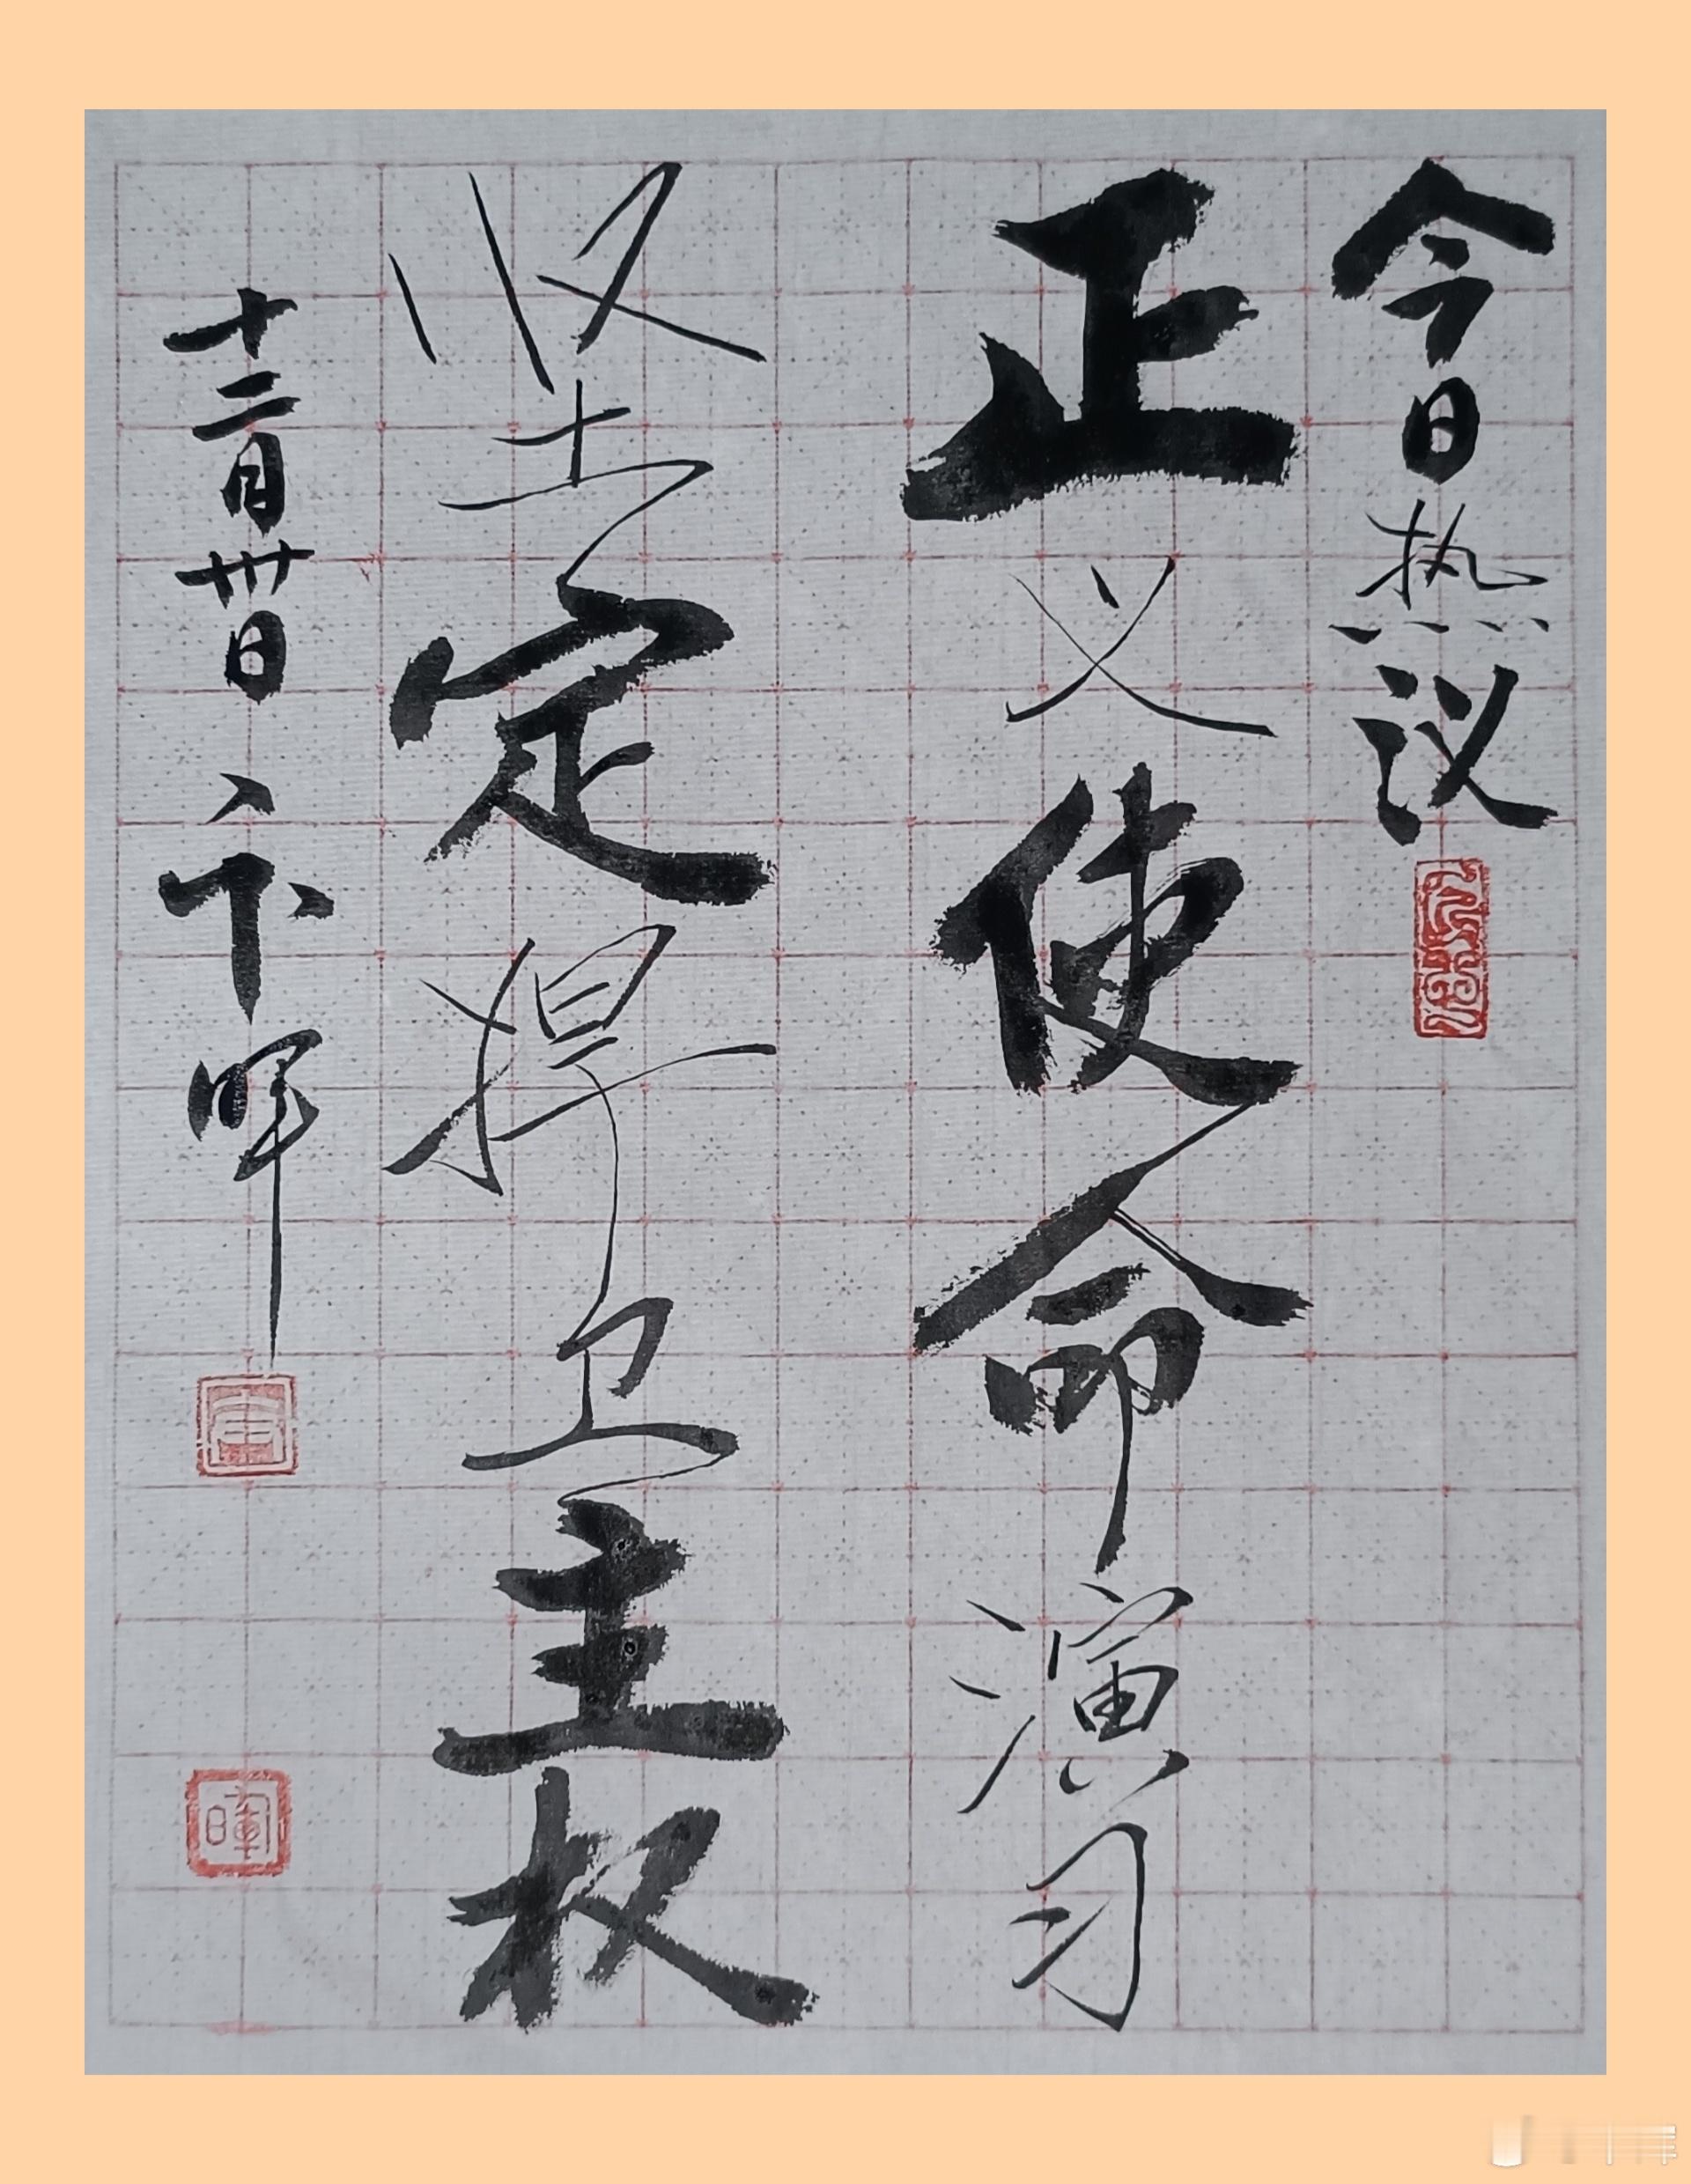 今日热议
正义使命演习
坚定捍卫主权
十二月卅日
卞晖
暉